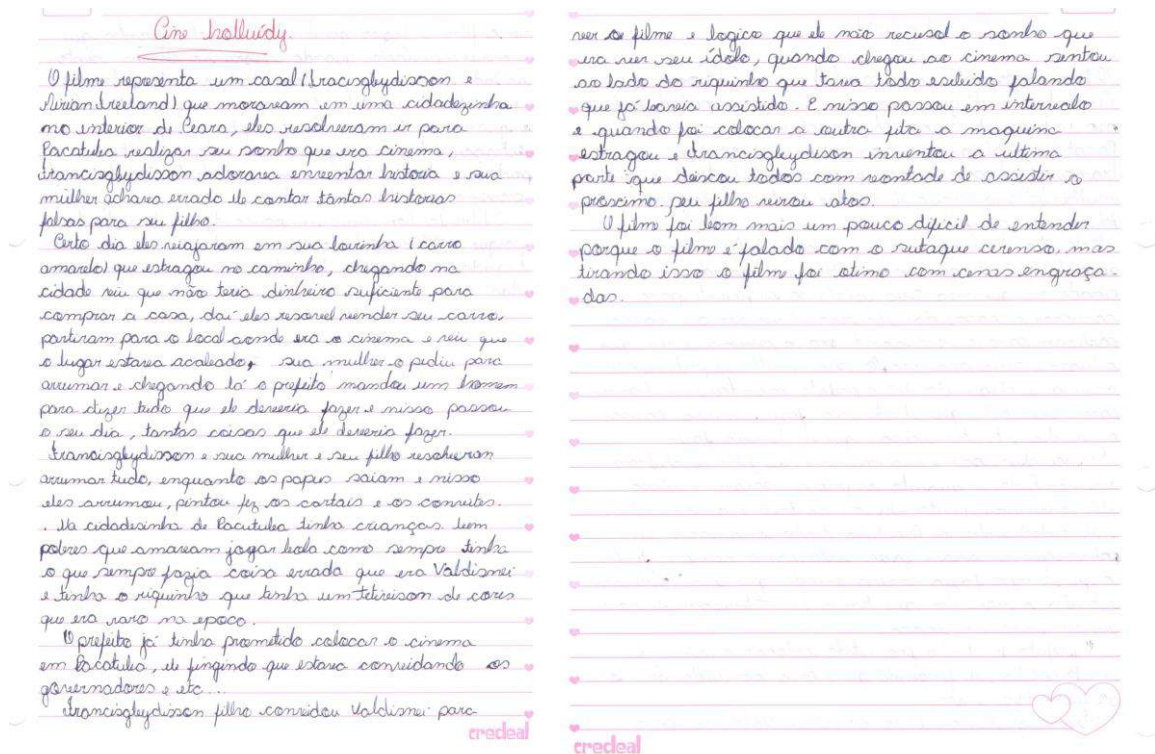 Cine holluídy.
O filme representa um casal (Francisgleydisson e
que moravam em uma cidadezinha
no interior de Ceara, eles resolveram ir para
Pacatuba realizar seu sonho que era cinema,
Francisgleydisson adorava enventar historia e sua
mulher achava errado ele contar tantas historias
falsas para seu filho.
Certo dia eles viajaram em sua lourinha (carro
amarelo) que estragou no caminho, chegando na
cidade viu que não teria dinheiro suficiente para
comprar a casa, daí eles vender seu carro,
partiram para o local aonde era o cinema e veiu que
o lugar estava acabado, sua mulher o pediu para
arrumar e chegando lá o prefeito mandou um homem
para dizer tudo que ele deveria fazer e nisso passou
o seu dia, tantas coisas que ele deveria fazer.
Francisgleydisson e sua mulher e seu filho resolveram
arrumar tudo, enquanto os papus saiam e nisso
eles arrumou, pintou fez os cartais e os convites.
. Na cidadesinha de Pacatuba tinha crianças bem
pobres que amavam jogar bola como sempre tinha
o que sempre fazia coisa errada que era Valdisnei
e tinha o riquinho que tinha um de cores
que era raro na epoco.
O prefeito já tinha prometido colocar o cinema
em Pacatuba, ele fingindo que estava convidando os
governadores e etc...
Francisgleydisson filho convidou Valdisnei para
credeal
ver o filme e logico que ele não recusol o sonho que
era ver seu ídolo, quando chegou ao cinema sentou
ao lado do riquinho que tava todo falando
que já havia assistido. E nisso passou em intervalo
e quando foi colocar a outra fita a maquina
estragou e Francisgleydisson inventou a ultima
parte que deixou todos com vontade de assistir o
proximo. seu filho virou atos.
O filme foi bom mais um pouco dificil de entender
porque o filme é falado com o sutaque cerenso, mas
tirando isso o filme foi otimo com cenas engraça-
das.
credeal